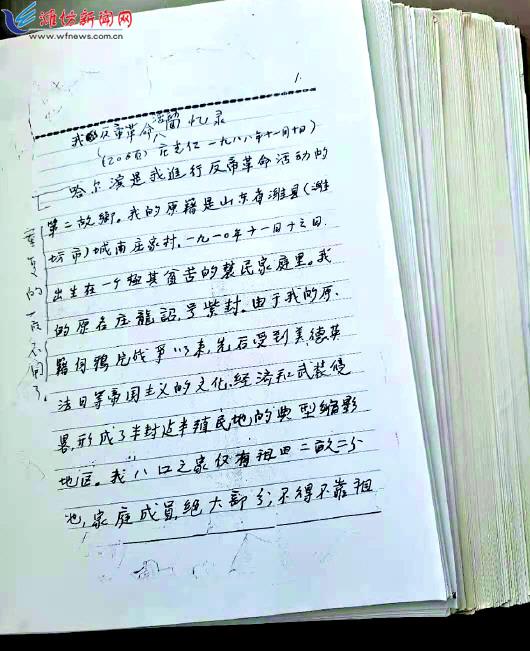 潍坊新闻网
www.wfnews.com.cn
1.
我反帝革命活动简忆录
(206页) 庄克仁 一九八八年十一月十日)
哈尔滨是我进行反帝革命活动的
第二故乡。我的原籍是山东省潍县(潍
坊市)城南庄家村,一九一〇年十一月十三日.
出生在一个极其贫苦的农民家庭里。我
的原名庄龍詔,号紫封。由于我的原.
籍自鸦片战争以来,先后受到美德英
法日等帝国主义的文化、经济和武装侵
畧,形成了半封建半殖民地的典型缩影
地区。我八口之家仅有祖田二亩二分
地,家庭成员,绝大部分,不得不靠租
重复的一段不用了